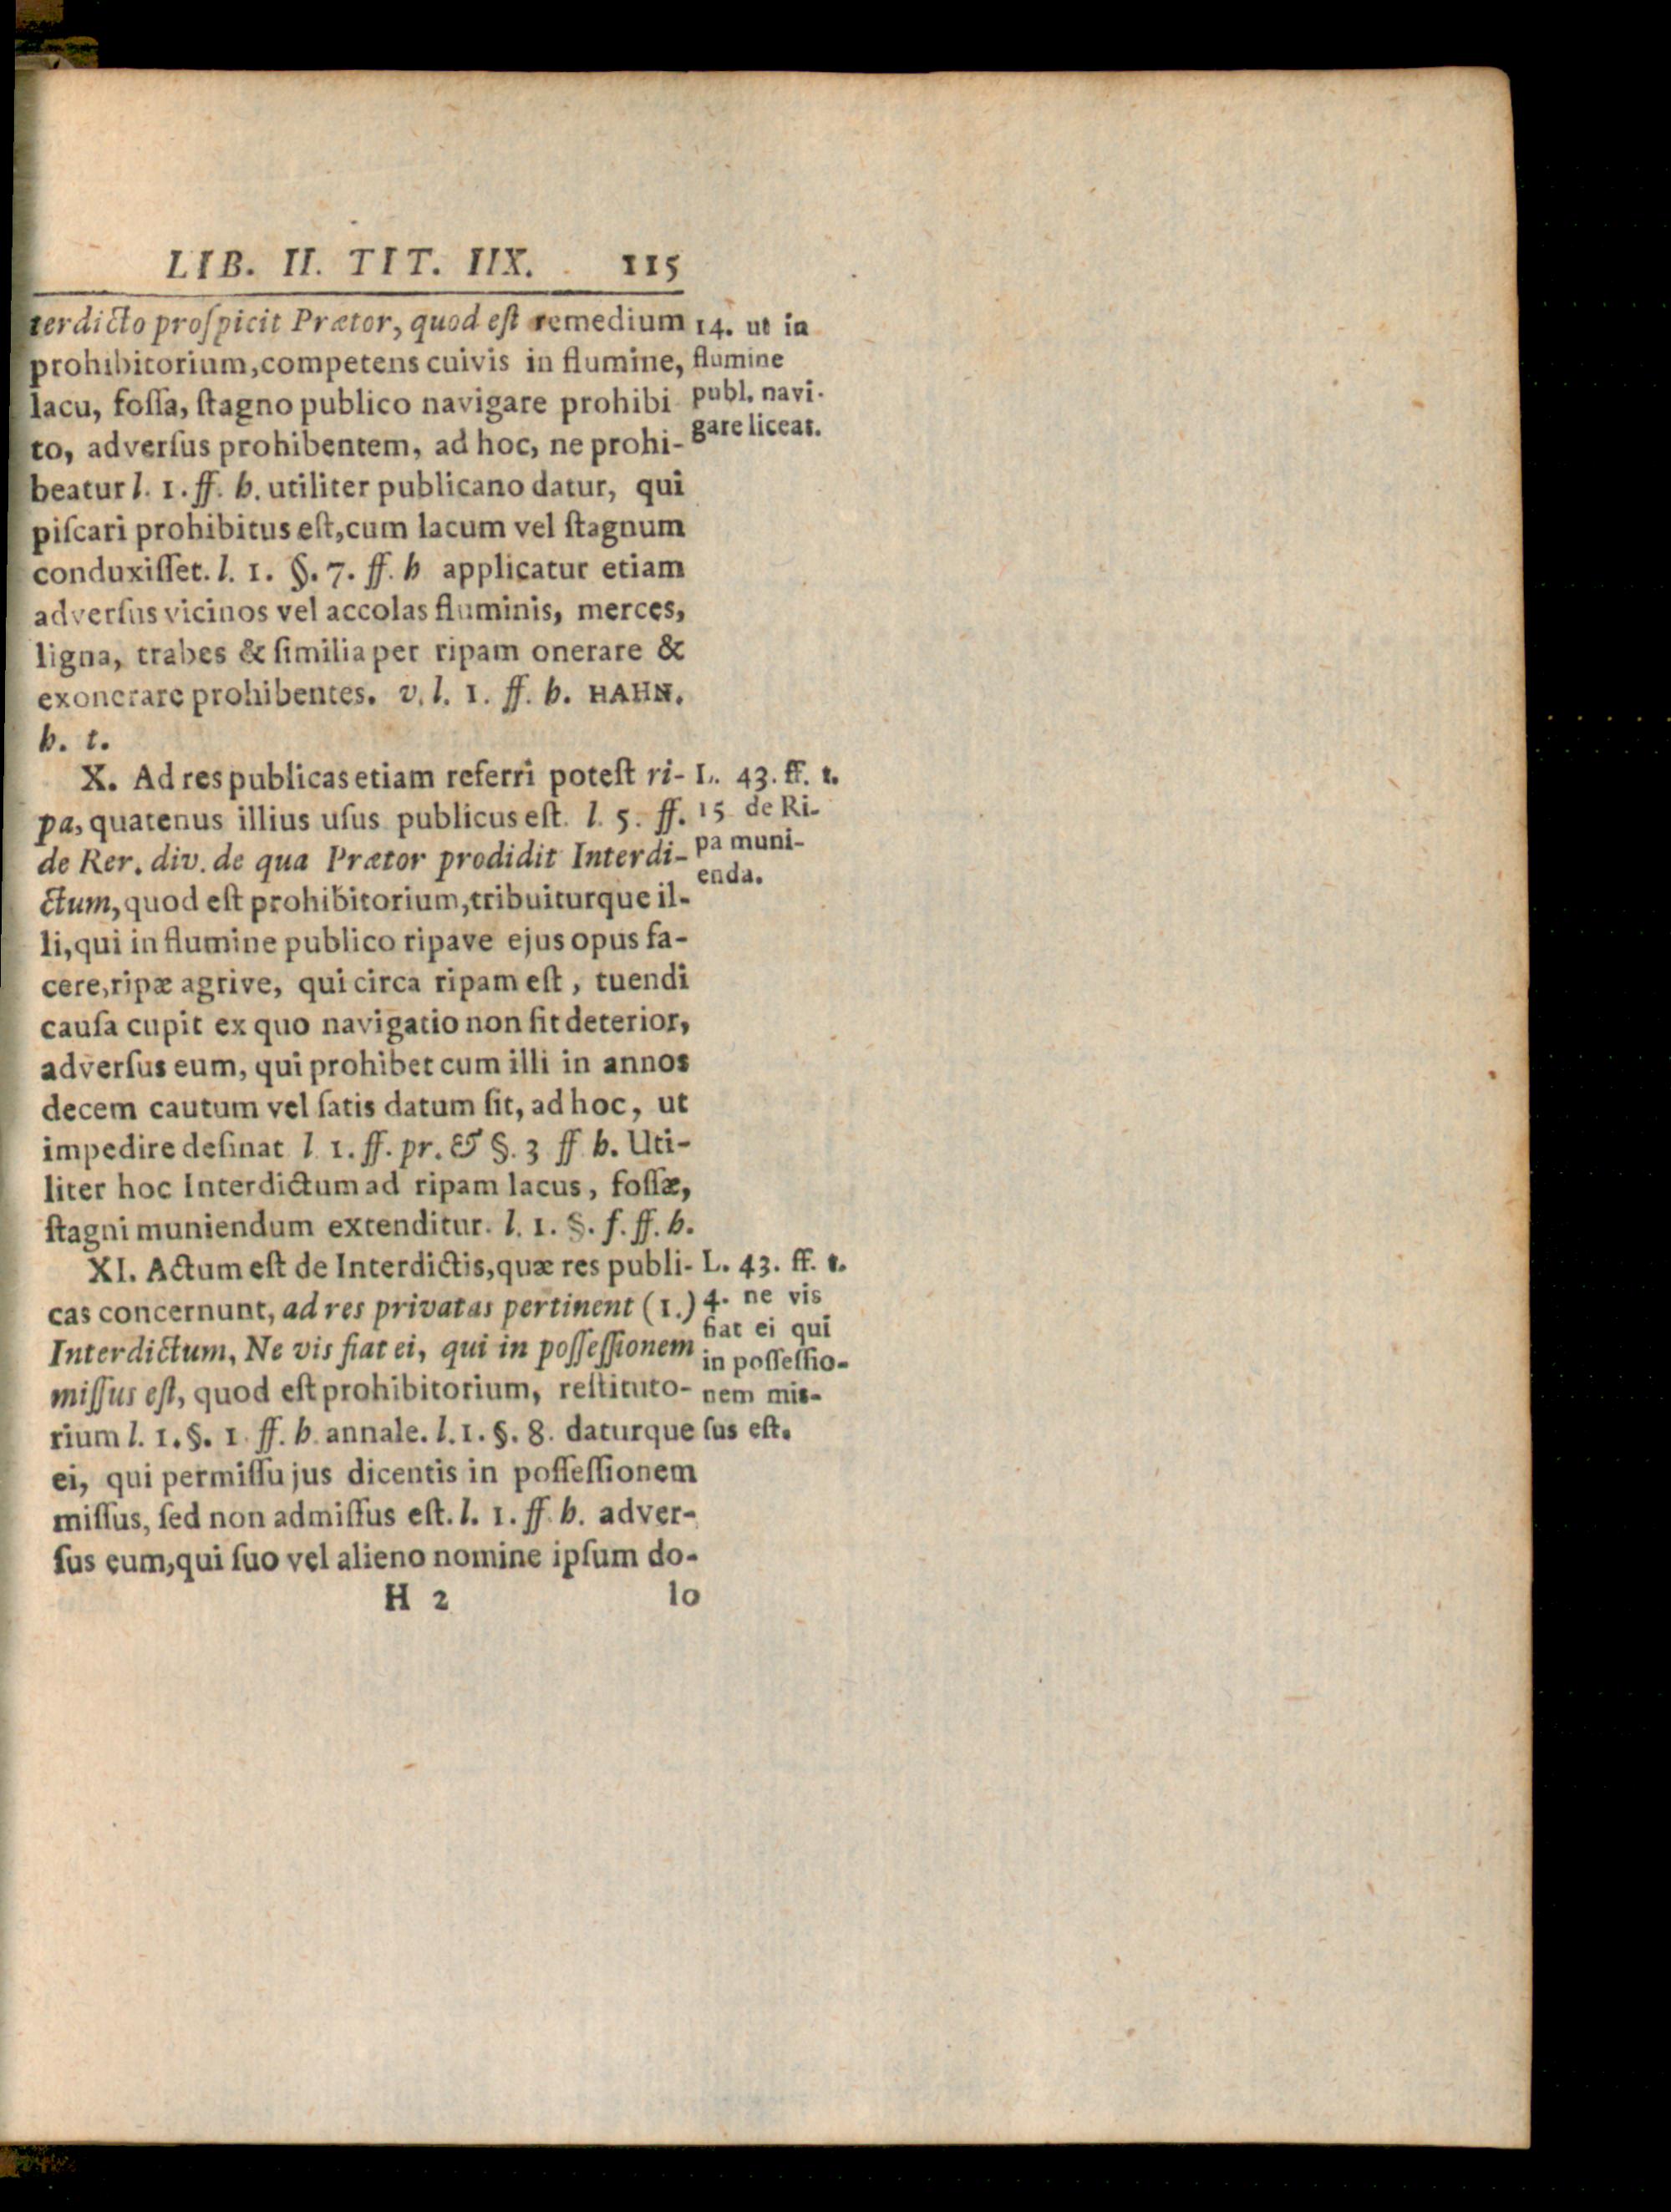 LIB. II. TIT. IIX. 115
terdicto proſpicit Prætor, quod eſt remedium
prohibitorium, competens cuivis in flumine,
lacu, foſſa, ſtagno publico navigare prohibi
to, adverſus prohibentem, ad hoc, ne prohi-
beatur l. 1. ff. h. utiliter publicano datur, qui
piſcari prohibitus eſt, cum lacum vel ſtagnum
conduxiſſet. l. 1. §. 7. ff. h applicatur etiam
adverſus vicinos vel accolas fluminis, merces,
ligna, trabes & ſimilia per ripam onerare &
exonerare prohibentes. v. l. 1. ff. h. HAHN.
h. t.
14. ut in
flumine
publ. navi-
gare liceat.
X. Ad res publicas etiam referri poteſt ri-
pa, quatenus illius uſus publicus eſt. l. 5. ff.
de Rer. div. de qua Prætor prodidit Interdi-
ctum, quod eſt prohibitorium, tribuiturque il-
li, qui in flumine publico ripave ejus opus fa-
cere, ripæ agrive, qui circa ripam eſt, tuendi
cauſa cupit ex quo navigatio non ſit deterior,
adverſus eum, qui prohibet cum illi in annos
decem cautum vel ſatis datum ſit, ad hoc, ut
impedire deſinat l 1. ff. pr. & §. 3 ff h. Uti-
liter hoc Interdictum ad ripam lacus, foſſæ,
ſtagni muniendum extenditur. l. 1. §. f. ff. h.
L. 43. ff. t.
15 de Ri-
pa muni-
enda.
XI. Actum eſt de Interdictis, quæ res publi-
cas concernunt, ad res privatas pertinent (1.)
Interdictum, Ne vis fiat ei, qui in poſſeſſionem
miſſus eſt, quod eſt prohibitorium, reſtituto-
rium l. 1. §. 1 ff. h. annale. l. 1. §. 8. daturque
ei, qui permiſſu jus dicentis in poſſeſſionem
miſſus, ſed non admiſſus eſt. l. 1. ff. h. adver-
ſus eum, qui ſuo vel alieno nomine ipſum do-
L. 43. ff. t.
4. ne vis
fiat ei qui
in poſſeſſio-
nem miſ-
ſus eſt.
H 2 lo